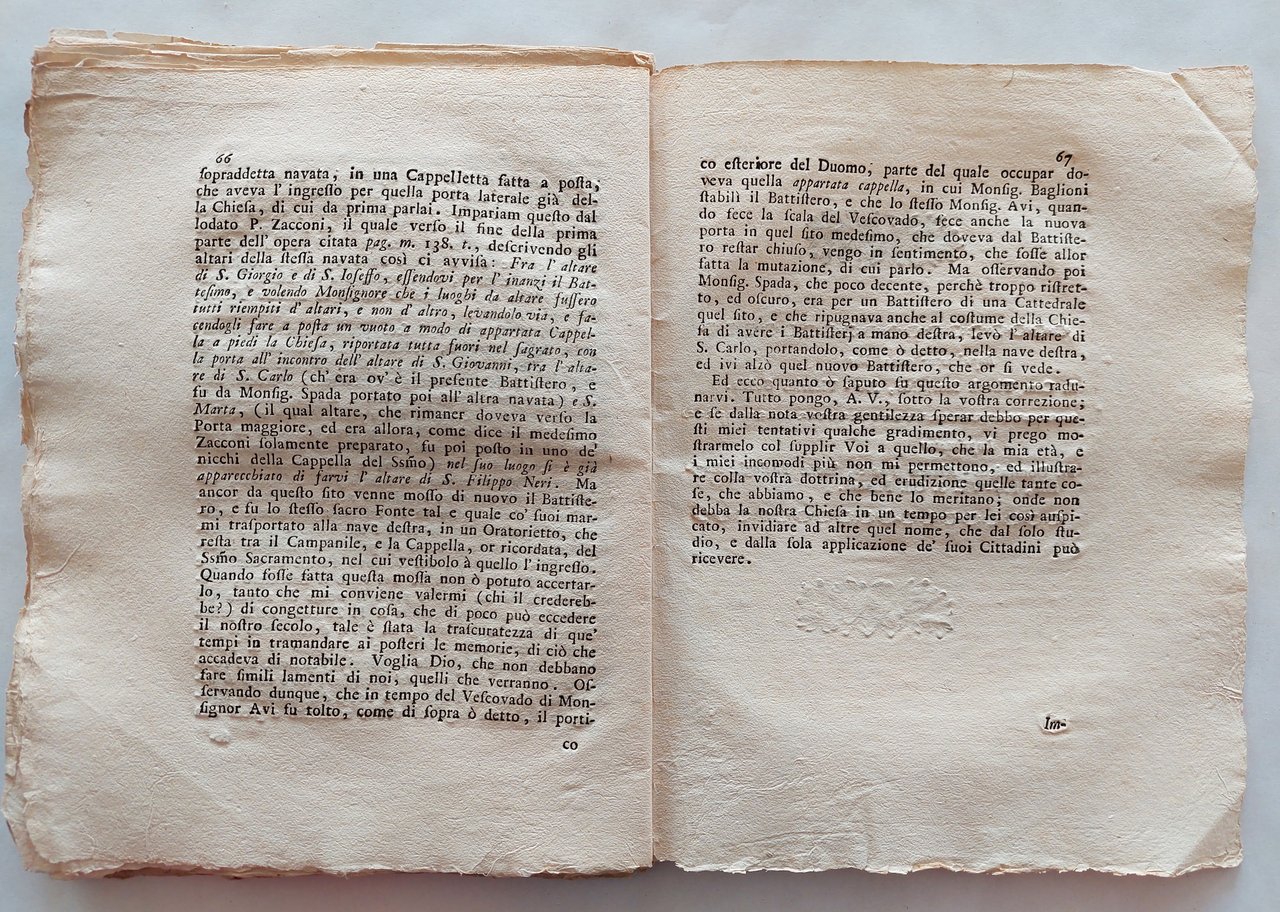 66
ſopraddetta navata, in una Cappelletta fatta a poſta,
che aveva l' ingreſſo per quella porta laterale già del-
la Chieſa, di cui da prima parlai. Impariam queſto dal
lodato P. Zacconi, il quale verſo il fine della prima
parte dell' opera citata pag. m. 138. t., deſcrivendo gli
altari della ſteſſa navata così ci avviſa: Fra l' altare
di S. Giorgio e di S. Ioſeffo, eſſendovi per l' inanzi il Bat-
teſimo, e volendo Monſignore che i luoghi da altare fuſſero
tutti riempiti d' altari, e non d' altro, levandolo via, e fa-
cendogli fare a poſta un vuoto a modo di appartata Cappel-
la a piedi la Chieſa, riportata tutta fuori nel ſagrato, con
la porta all' incontro dell' altare di S. Giovanni, tra l' alta-
re di S. Carlo (ch' era ov' è il preſente Battiſtero, e
fu da Monſig. Spada portato poi all' altra navata) e S.
Marta, (il qual altare, che rimaner doveva verſo la
Porta maggiore, ed era allora, come dice il medeſimo
Zacconi ſolamente preparato, fu poi poſto in uno de'
nicchi della Cappella del Ssm̃o) nel ſuo luogo ſi è già
apparecchiato di farvi l' altare di S. Filippo Neri. Ma
ancor da queſto ſito venne moſſo di nuovo il Battiſte-
ro, e fu lo ſteſſo ſacro Fonte tal e quale co' ſuoi mar-
mi traſportato alla nave deſtra, in un Oratorietto, che
reſta tra il Campanile, e la Cappella, or ricordata, del
Ssm̃o Sacramento, nel cui veſtibolo à quello l' ingreſſo.
Quando foſſe fatta queſta moſſa non ò potuto accertar-
lo, tanto che mi conviene valermi (chi il credereb-
be?) di congetture in coſa, che di poco può eccedere
il noſtro ſecolo, tale è ſtata la traſcuratezza di que'
tempi in tramandare ai poſteri le memorie, di ciò che
accadeva di notabile. Voglia Dio, che non debbano
fare ſimili lamenti di noi, quelli che verranno. Oſ-
ſervando dunque, che in tempo del Veſcovado di Mon-
ſignor Avi fu tolto, come di ſopra ò detto, il porti-
co
67
co eſteriore del Duomo, parte del quale occupar do-
veva quella appartata cappella, in cui Monſig. Baglioni
ſtabilì il Battiſtero, e che lo ſteſſo Monſig. Avi, quan-
do fece la ſcala del Veſcovado, fece anche la nuova
porta in quel ſito medeſimo, che doveva dal Battiſte-
ro reſtar chiuſo, vengo in ſentimento, che foſſe allor
fatta la mutazione, di cui parlo. Ma oſſervando poi
Monſig. Spada, che poco decente, perchè troppo riſtret-
to, ed oſcuro, era per un Battiſtero di una Cattedrale
quel ſito, e che ripugnava anche al coſtume della Chie-
ſa di avere i Battiſterj a mano deſtra, levò l' altare di
S. Carlo, portandolo, come ò detto, nella nave deſtra,
ed ivi alzò quel nuovo Battiſtero, che or ſi vede.
Ed ecco quanto ò ſaputo ſu queſto argomento radu-
narvi. Tutto pongo, A. V., ſotto la voſtra correzione;
e ſe dalla nota voſtra gentilezza ſperar debbo per que-
ſti miei tentativi qualche gradimento, vi prego mo-
ſtrarmelo col ſupplir Voi a quello, che la mia età, e
i miei incomodi più non mi permettono, ed illuſtra-
re colla voſtra dottrina, ed erudizione quelle tante co-
ſe, che abbiamo, e che bene lo meritano; onde non
debba la noſtra Chieſa in un tempo per lei così auſpi-
cato, invidiare ad altre quel nome, che dal ſolo ſtu-
dio, e dalla ſola applicazione de' ſuoi Cittadini può
ricevere.
Im-